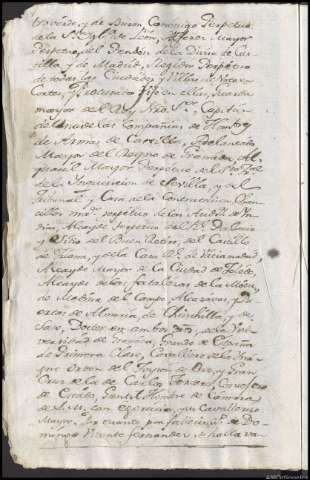 y de Buron Canonigo Perpetuo
de la Sta. Ygl.a de Leon, Alferez Mayor
Perpetuo del Pendon de la Divisa de Cas
tilla, y de Madrid, y Regidor Perpetuo
de todas las Ciudades, y Villas de Voto en
Cortes, y Procurador en ellas, Guarda
mayor del Rey Nro. Sor. Capitan
de Una de las Compañias de Hombres
de Armas de Castilla, Adelantado
Mayor del Reyno de Granada, Al
guacil Mayor Perpetuo del
de la Inquisicion de Sevilla, y del
Tribunal y Casa de la Contratacion, Chan
ciller mor. perpetuo de las de Yn
dias, Alcayde perpetuo del Rl. Palacio
y Sitio del Buen Retiro, del Castillo
de y de la Casa Rl. de Vaciamadrid,
Alcayde Mayor de la Ciudad de Toledo,
Alcayde de las fortalezas de la Mota
de Medina del Campo, Alcazares, y Pu
ertos de Almeria, de Chinchilla y de
Doctor en ambos dros. de la Uni
versidad de Granada, Grande de España
de Primera Clase, Cavallero de la Ynsig
ne orden del Toyson de Oro, y Gran
Cruz de la de Carlos Tercero, Consejero
de Estado, Gentil Hombre de Camara
de S. M. con exercicio, y su Cavallerizo
Mayor. Por cuanto por fallecimto. de Do
mingo Vicente Fernandez se halla va